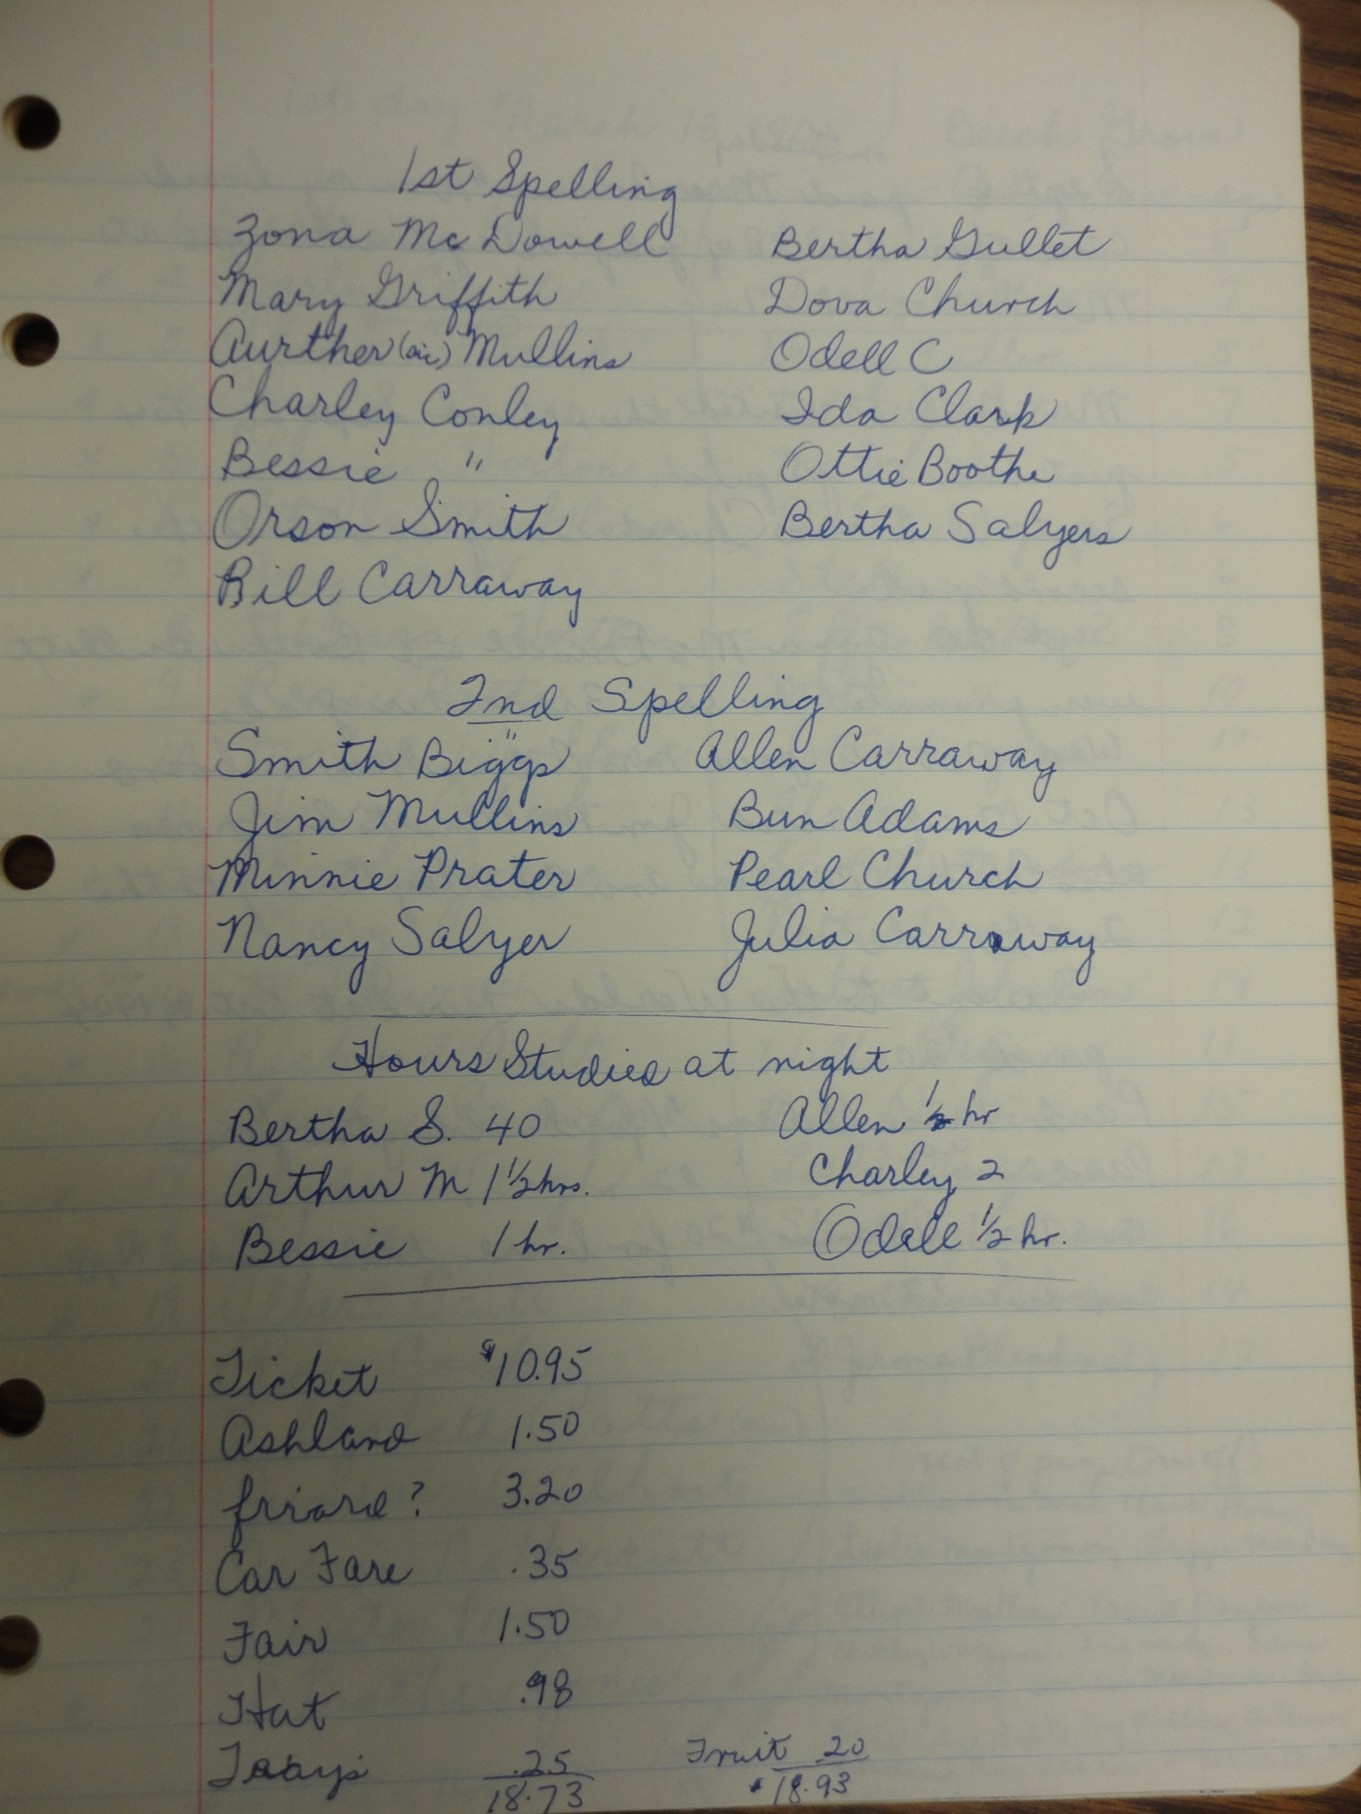 1st Spelling
Zona McDowell Bertha Gullet
Mary Griffith Dova Church
Aurther (sic) Mullins Odell C
Charley Conley Ida Clark
Bessie " Ottie Boothe
Orson Smith Bertha Salyers
Bill Carraway
2nd Spelling
Smith Biggs Allen Carraway
Jim Mullins Bun Adams
Minnie Prater Pearl Church
Nancy Salyer Julia Carraway
Hours Studied at night
Bertha S. 40 Allen ½ hr
Arthur M 1 ½ hrs. Charley 2
Bessie 1 hr. Odell ½ hr.
Ticket $10.95
Ashland 1.50
friard? 3.20
Car Fare .35
Fair 1.50
Hat .98
.25 Fruit 20
18.73 18.93